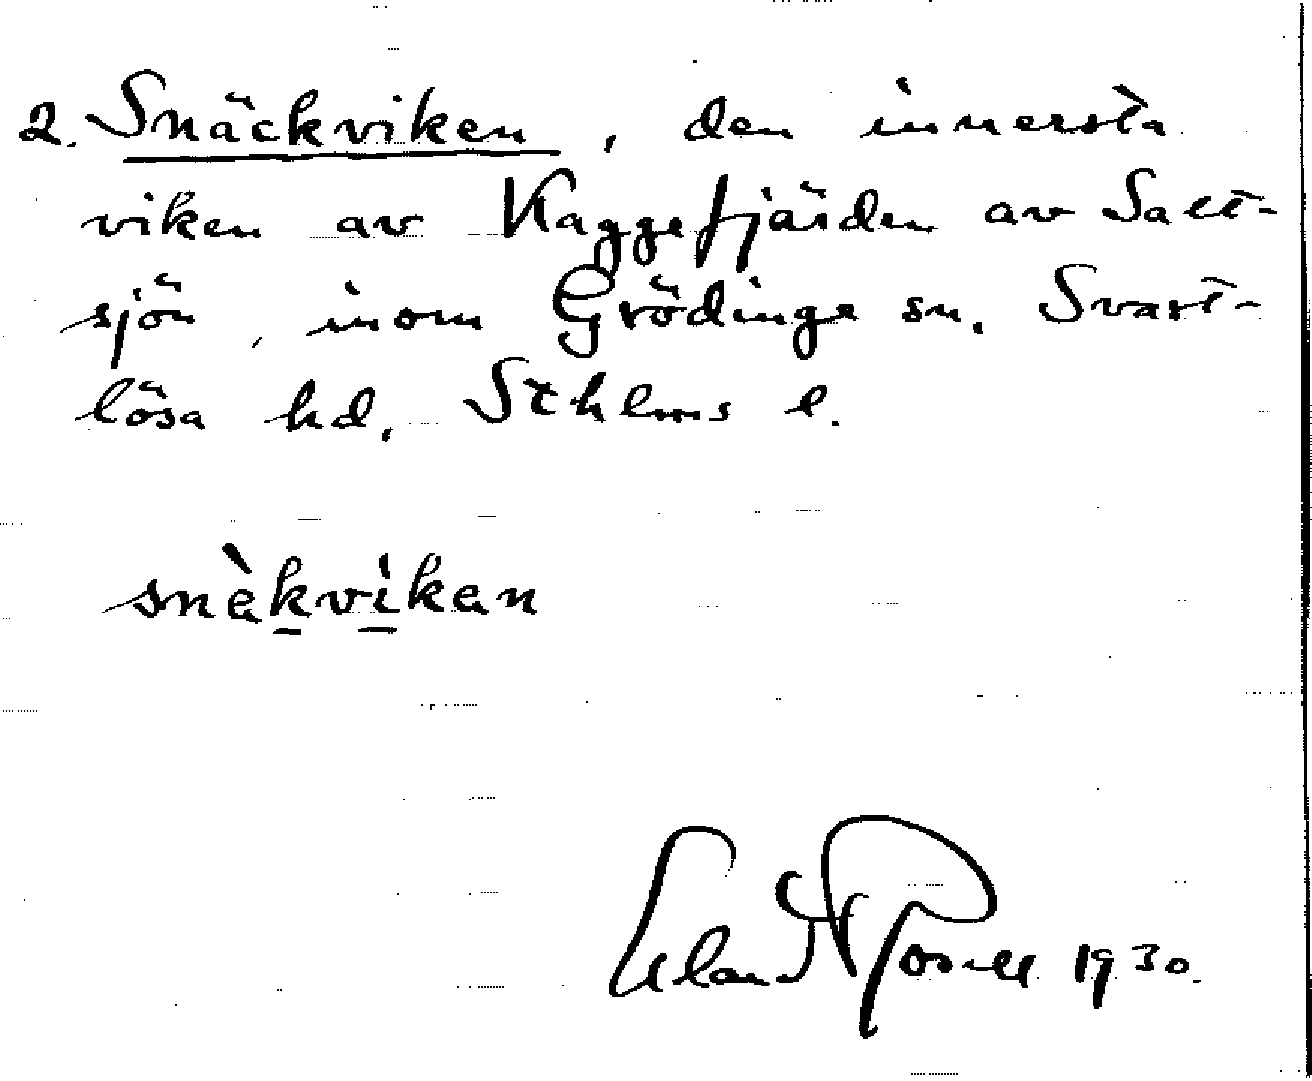 2. Snäckviken, den innersta
viken av Kaggefjärden av Salt-
sjön, inom Grödinge sn. Svart-
lösa hd, Sthlms l.
snèkvìkan
Erland Rosell 1930.